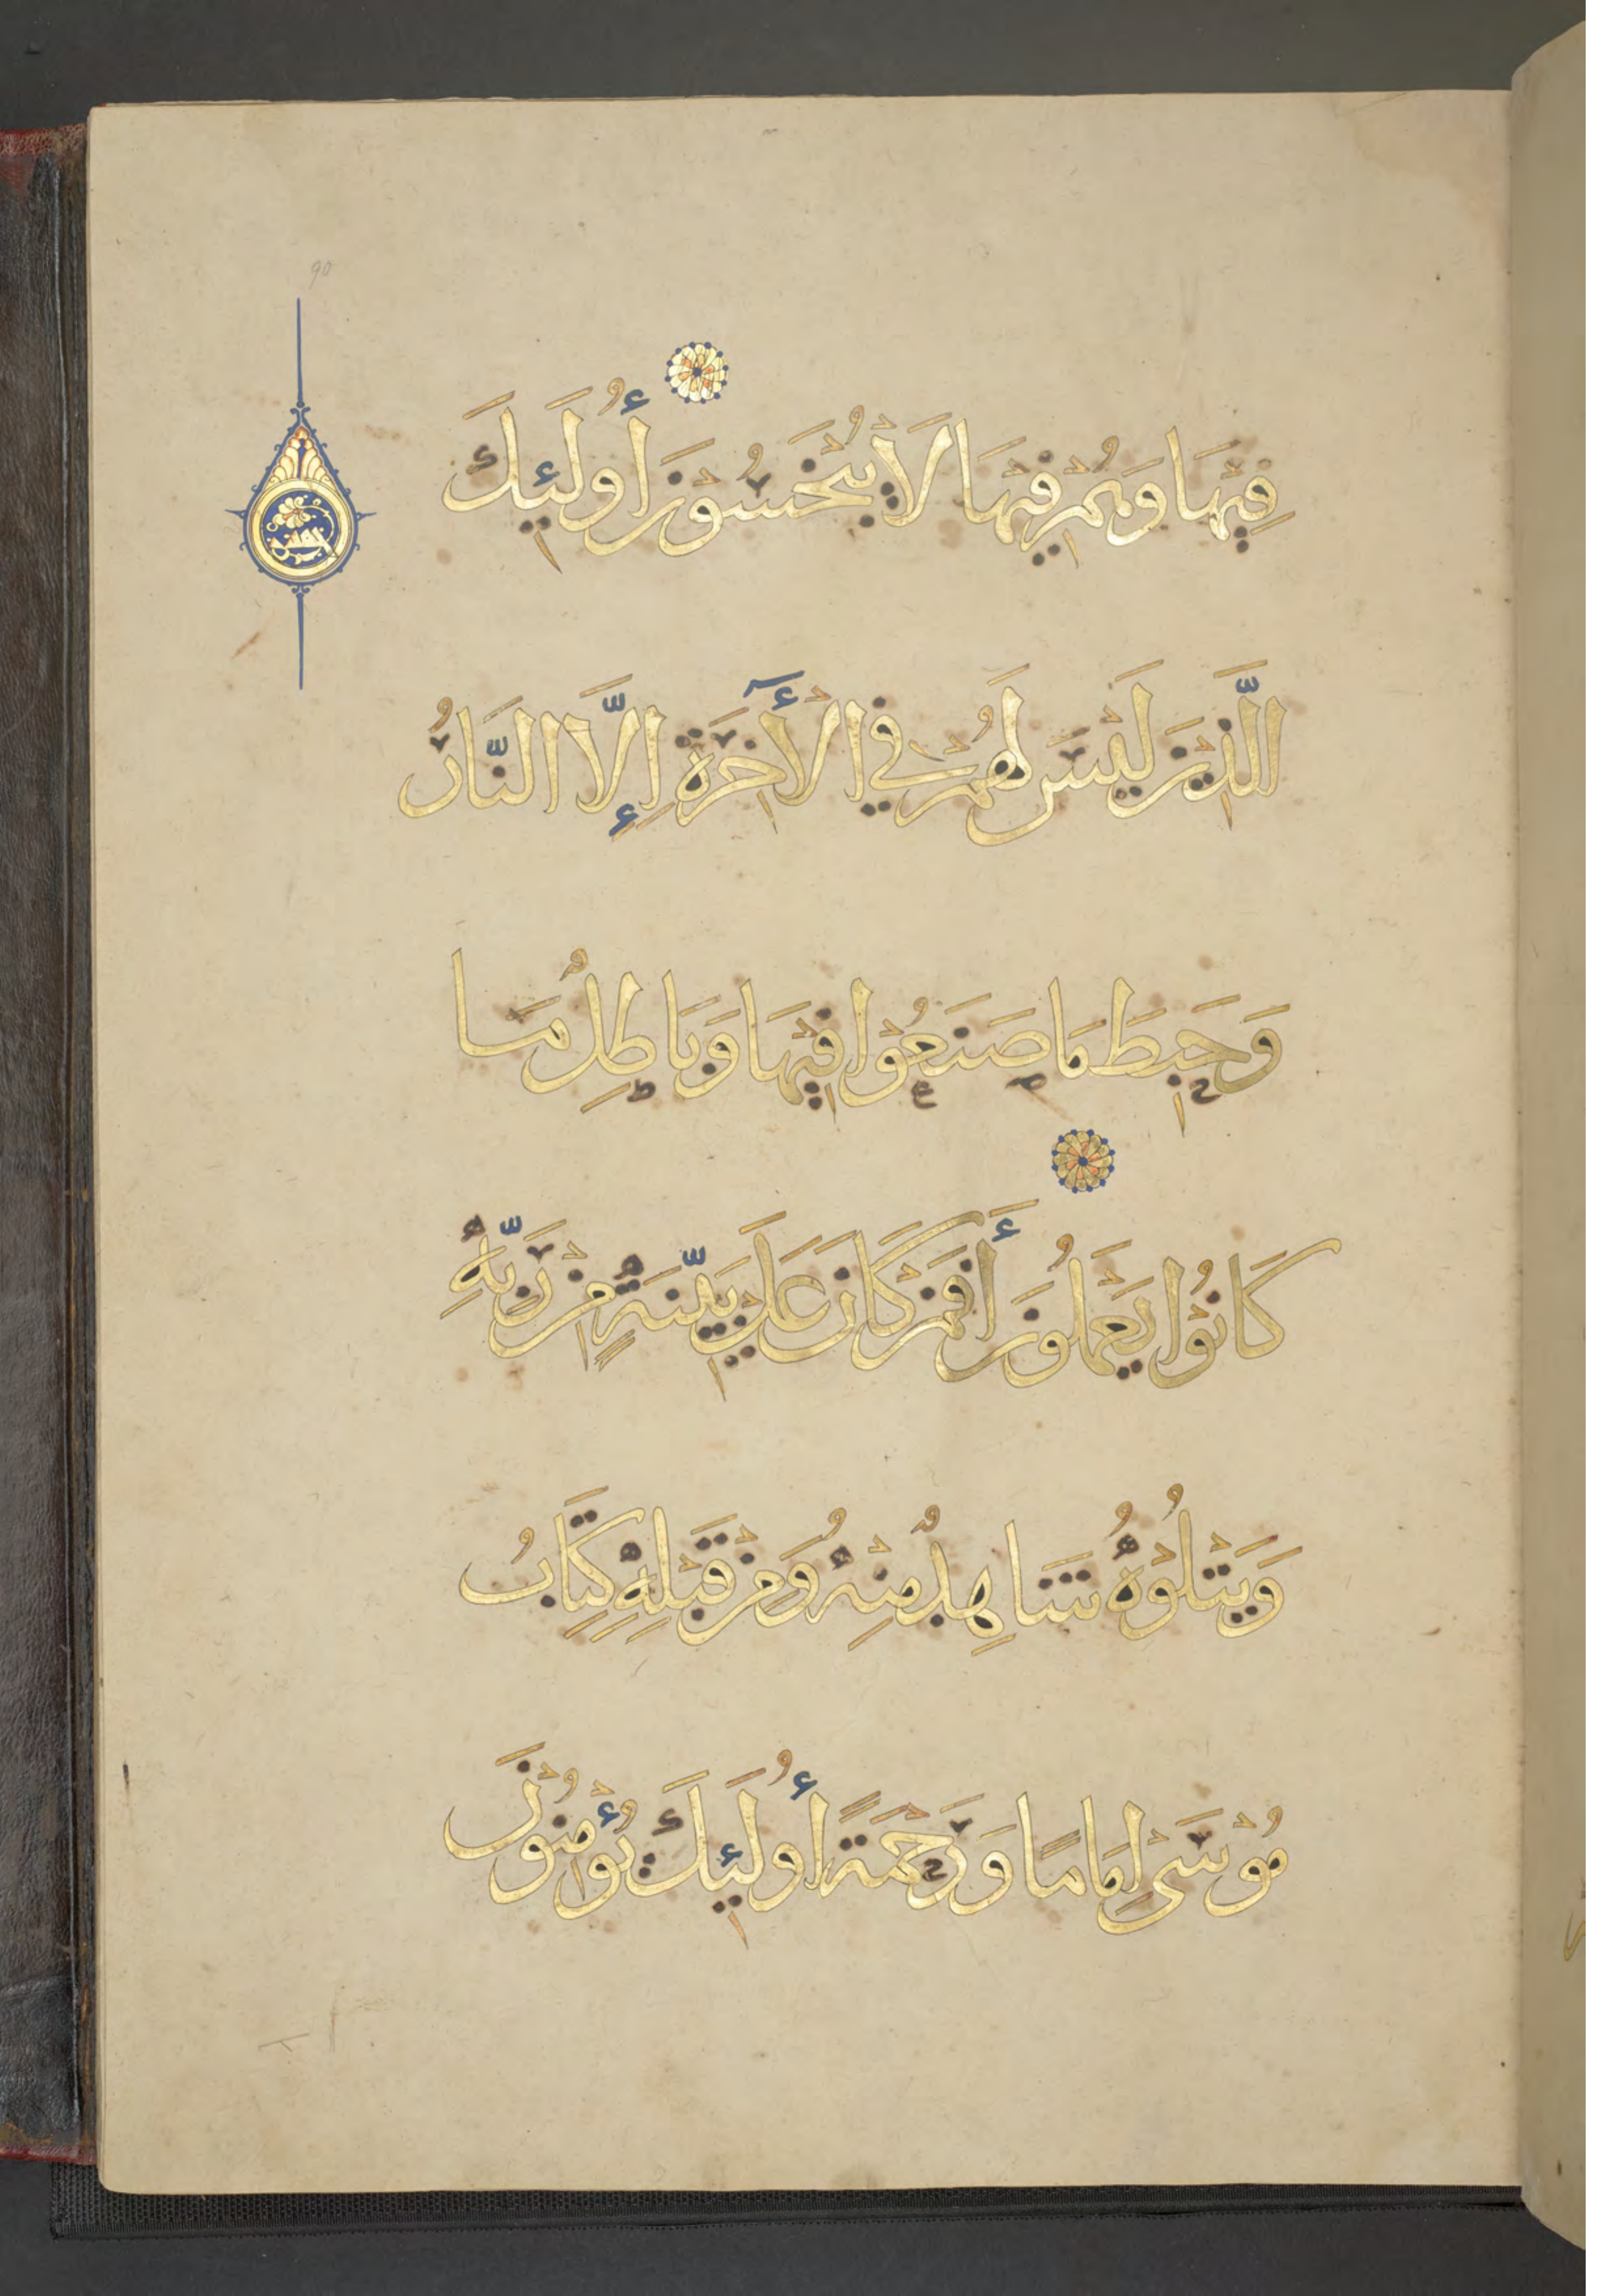 90
فِيْهَا وَهُمْ فِيْهَا لَا يُبْخَسُوْنَ أُولَئِكَ
الَّذِيْنَ لَيْسَ لَهُمْ فِي الْأٓخِرَةِ إِلَّا النَّارُ
وَحَبِطَ مَا صَنَعُوْا فِيْهَا وَبَاطِلٌ مَا
كَانُوْا يَعْمَلُوْنَ أَفَمَنْ كَانَ عَلَى بَيِّنَةٍ مِنْ رَبِّهِ
وَيَتْلُوْهُ شَاهِدٌ مِنْهُ وَمِنْ قَبْلِهِ كِتَابُ
مُوْسَى إِمَامًا وَرَحْمَةً أُولَئِكَ يُؤْمِنُوْنَ